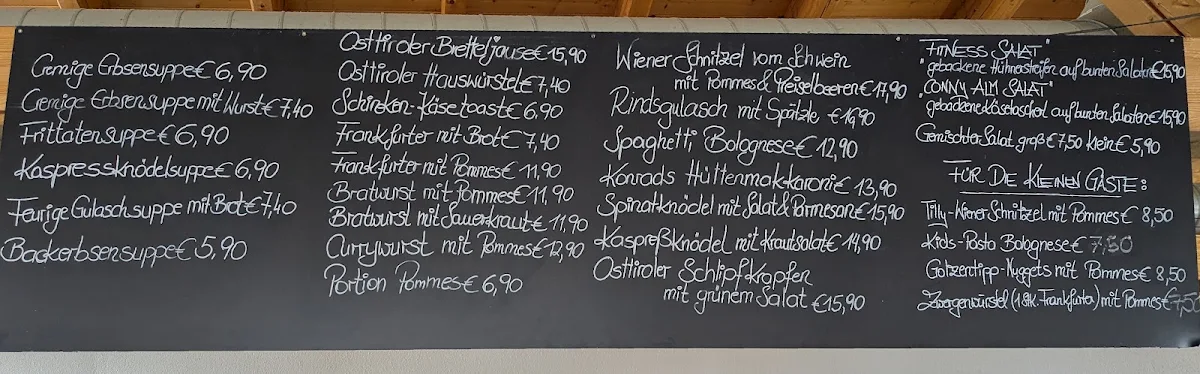 Cremige Erbsensuppe € 6,90
Cremige Erbsensuppe mit Wurst € 7,40
Frittatensuppe € 6,90
Kaspressknödelsuppe € 6,90
Feurige Gulaschsuppe mit Brot € 7,40
Backerbsensuppe € 5,90
Osttiroler Bretteljause € 15,90
Osttiroler Hauswürstel € 7,40
Schinken-Käsetoast € 6,90
Frankfurter mit Brot € 7,40
Frankfurter mit Pommes € 11,90
Bratwurst mit Pommes € 11,90
Bratwurst mit Sauerkraut € 11,90
Currywurst mit Pommes € 12,90
Portion Pommes € 6,90
Wiener Schnitzel vom Schwein
mit Pommes & Preiselbeeren € 17,90
Rindsgulasch mit Spätzle € 16,90
Spaghetti Bolognese € 12,90
Konrads Hüttenmak-karoni € 13,90
Spinatknödel mit Salat & Parmesan € 15,90
Kaspreßknödel mit Krautsalat € 14,90
Osttiroler Schlipfkrapfen
mit grünem Salat € 15,90
"FITNESS SALAT"
"gebackene Hühnerstreifen auf bunten Salaten € 15,90
"CONNY ALM SALAT"
gebackene Käsetascherl auf bunten Salaten € 15,90
Gemischter Salat groß € 7,50 klein € 5,90
FÜR DIE KLEINEN GÄSTE:
Tilly-Wiener Schnitzel mit Pommes € 8,50
Kids-Pasta Bolognese € 7,50
Golzentipp-Nuggets mit Pommes € 8,50
Zwergenwürstel (1 Stk. Frankfurter) mit Pommes € 7,50